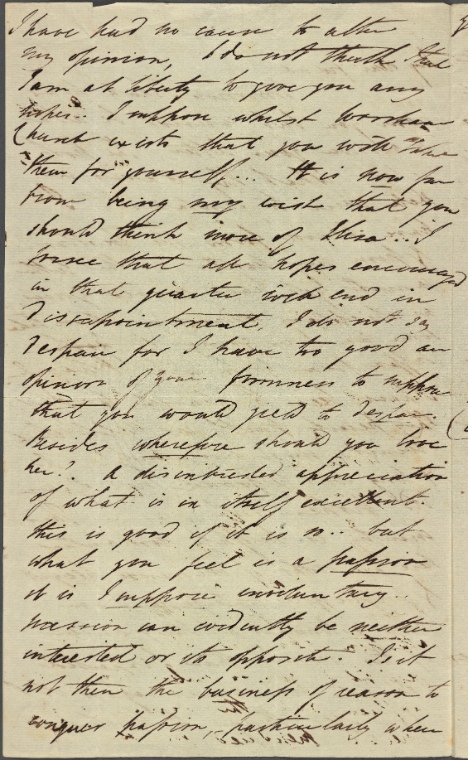 I have had no cause to alter
my opinion, I do not think that
I am at liberty to give you any
hopes.. I suppose whilst
Church exists that you will
them for yourself... It is now far
from being my wish that you
should think more of Eliza.. I
foresee that all hopes encouraged
in that quarter will end in
Disappointment. I do not say
Despair for I have too good an
opinion of your firmness to suppose
that you would yield to despair.
Besides wherefore should you love
her? A disinterested appreciation
of what is in itself excellent.
this is good if it is so.. but
what you feel is a passion
it is I suppose involuntary..
passion can evidently be neither
interested or its opposite. Is it
not then the business of reason to
conquer passion, particularly when